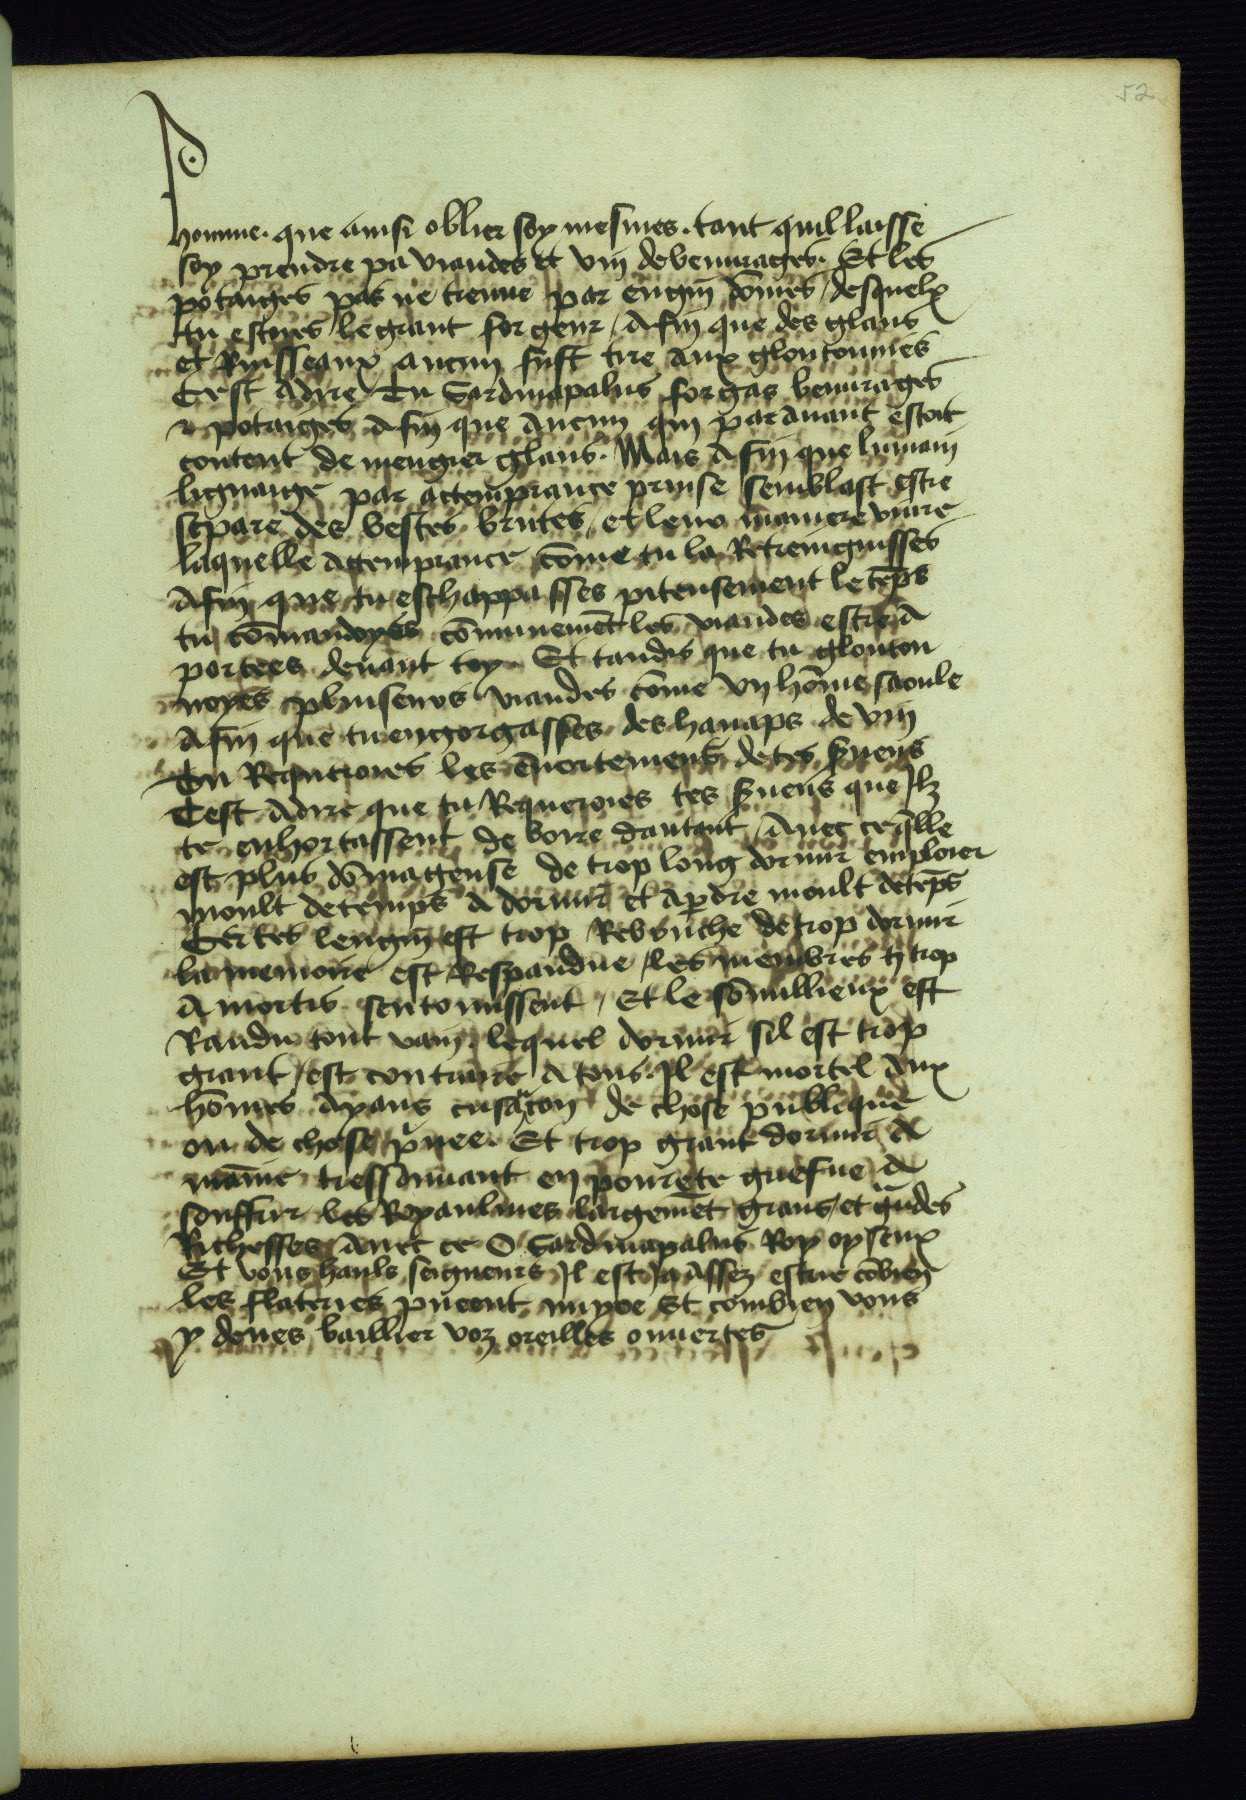 52
homme. que ainsi oblier soy mesmes. tant quil laisse
soy prendre pa viandes et vin de beuurages. Et les
potaiges pas ne tienne par engin dōmes / desquelx
tu estoies le grant forgeur / Afin que des glans
et Ruisseaux aucun fust tire aux gloutonnies
Cest adire Tu Sardinapalus forgas beuurages
& potaiges Afin que aucun qui parauant estoit
content de mengier glans. Mais Afin que lumain
lignaige par actemprance prinse semblast estre
separe des bestes brutes / et leur maniere viure
laquelle actemprance cōme tu la Retreingnisses
Afin que tu eschappasses piteusement le tēps
tu cōmandoyes cōmunemēt les viandes estre a
portees deuant toy. Et tandis que tu glouton
noyes pluiseurs viandes cōme vn hōme saoule
Afin que tu engorgasses des hanaps de vin
Tu Requeroies les ēnortemens de tes
Cest adire que tu Requeroies tes que Jlz
te enhortassent de boire dautant / Auec ce q̄lle
est plus dōmageuse de trop long dormir emploier
moult de temps a dormir et a p̄dre moult de tēps
Certes lengin est trop Rebouche de trop dormir
la memoire est Respandue / les membres
Amortis sentomissent / Et le sōmillieux est
Randu tout vain. lequel dormir sil est trop
grant / est contraire a tous. Jl est mortel aux
hōmes ayans de chose publique
ou de chose p̄uee. Et trop grant dormir
en pourete
souffrir les Royaulmes largemēt grans / et g̃ndes
Richesses Auec ce O Sardinapalus Roy oyseux
Et vous haulx seigneurs Jl est ja assez cōbien
les flateries Et combien vous
y deues baillier voz oreilles ouuertes